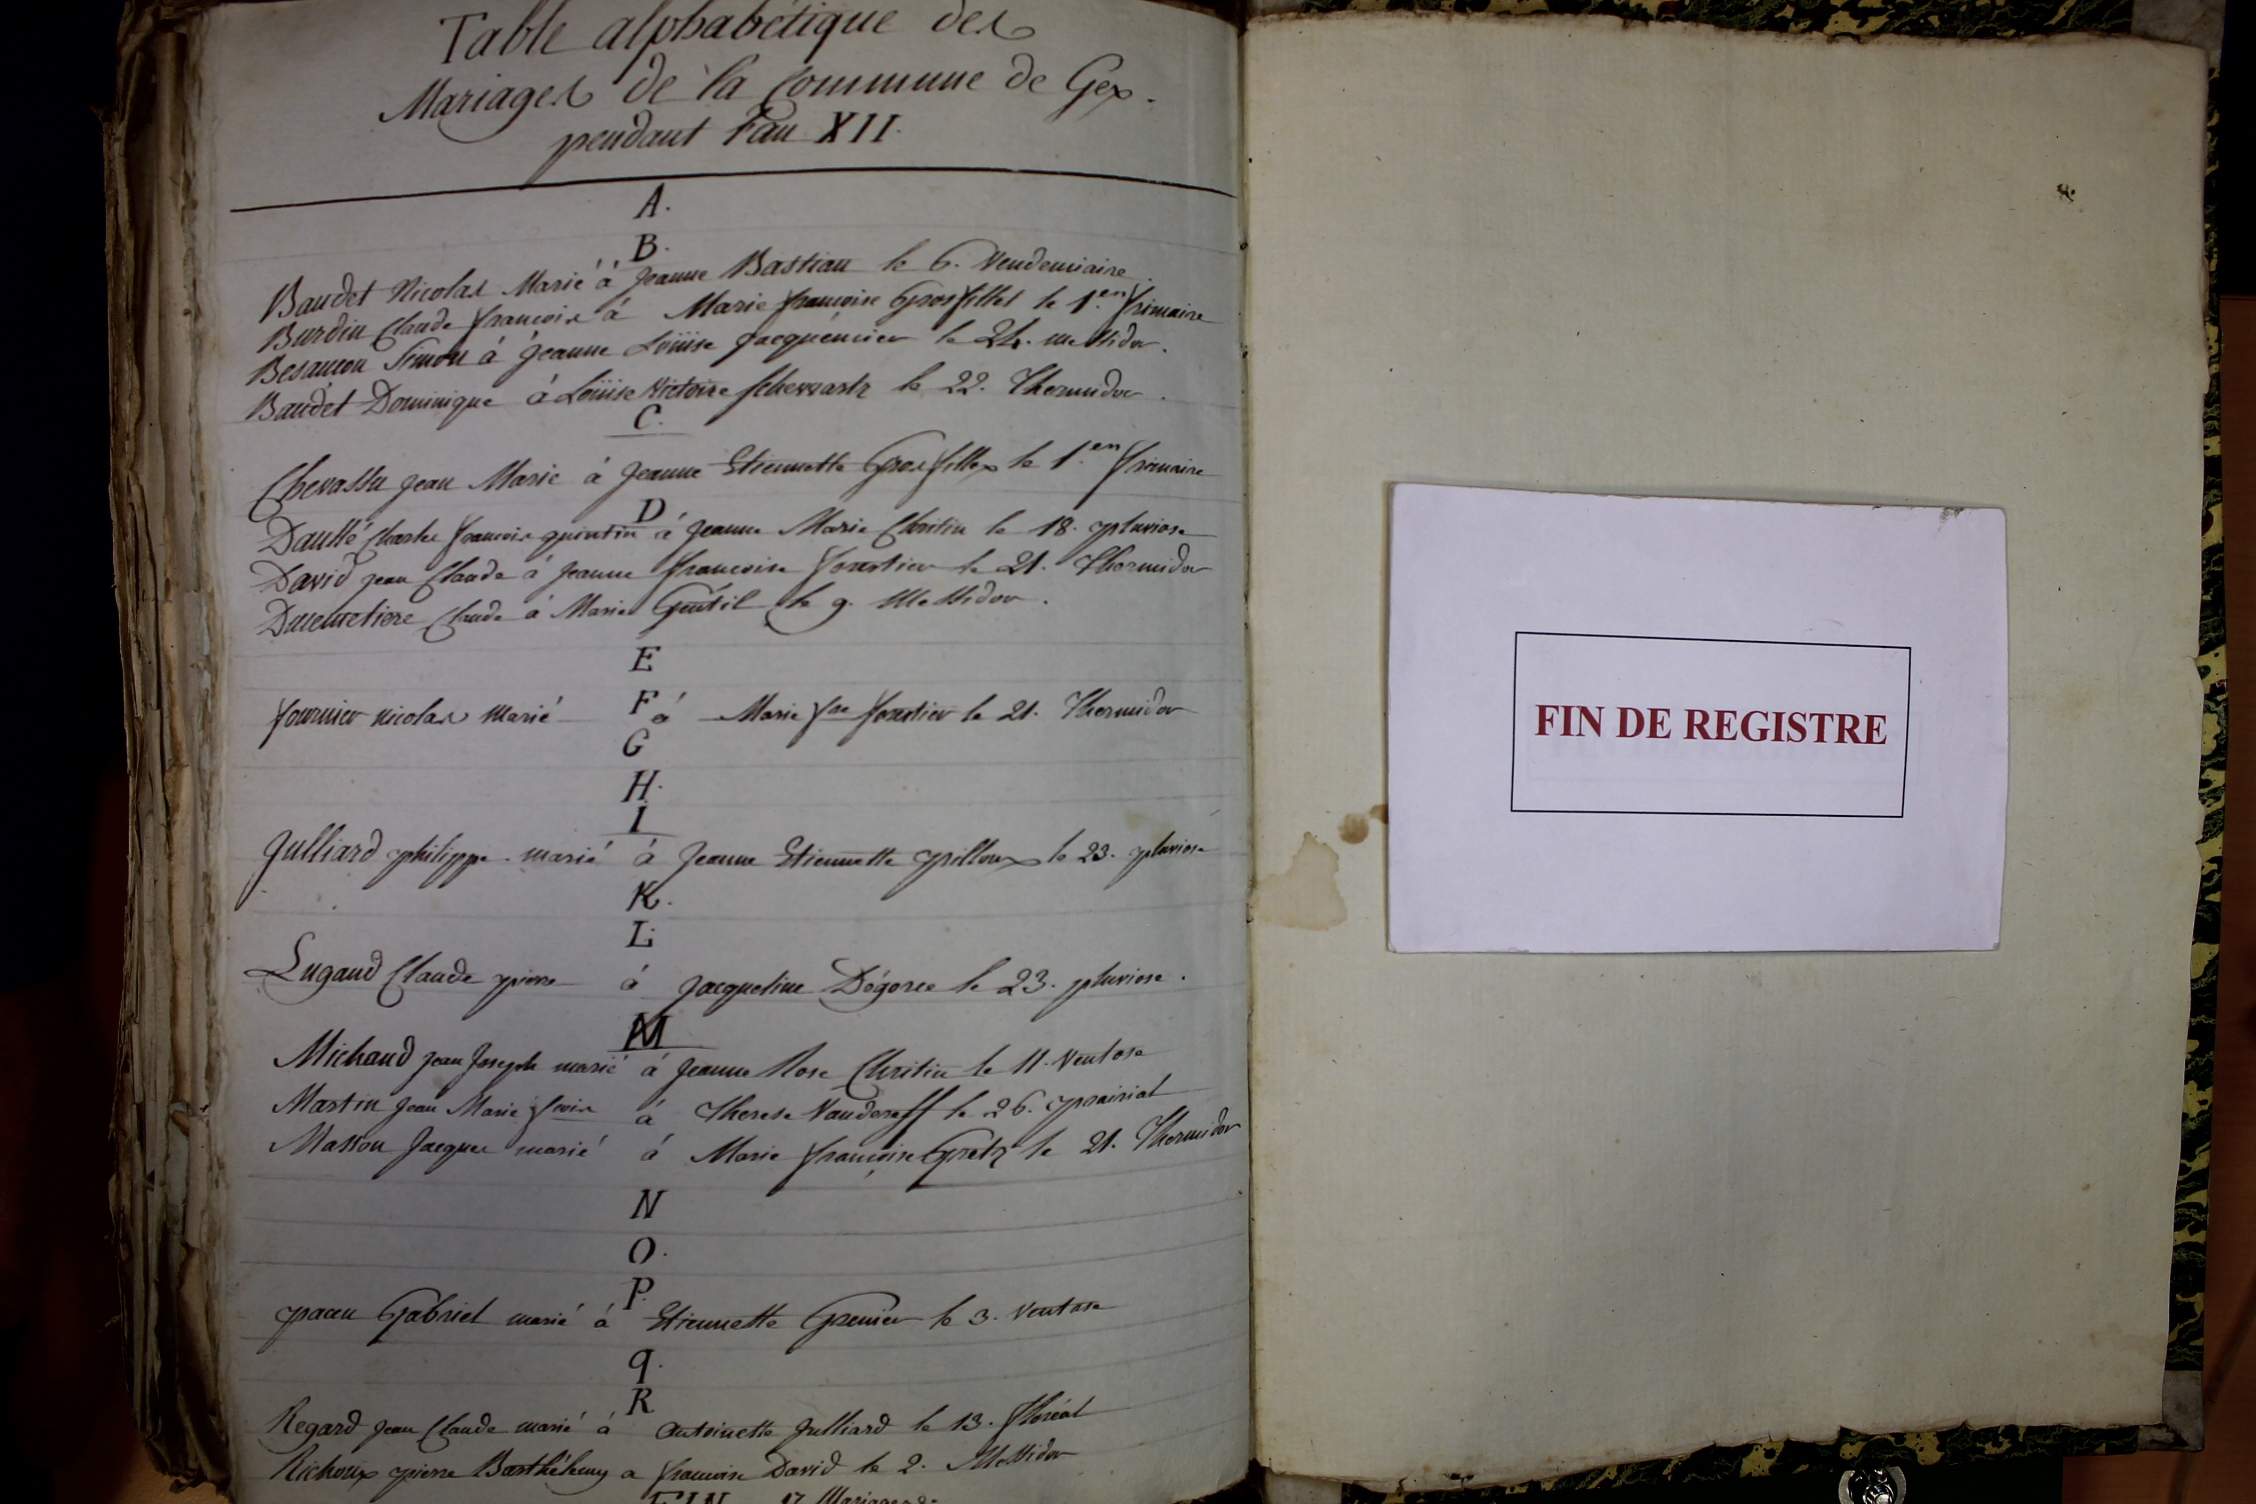 Table alphabétique des
Mariages de la Commune de Gex.
pendant l'an XII.
A.
B.
Baudet Nicolas Marié à Jeanne Bastian le 6. Vendemiaire.
Burdin Claude françois à Marie françoise Grosfillet le 1.er frimaire
Besancon Simon à Jeanne Loüise Jacquémier le 24. messidor.
Baudet Dominique à Loüise Victoire Schewartz le 22. Thermidor.
C.
Chevassu Jean Marie à Jeanne Etiennette Grosfillex le 1.er frimaire
D
Daullé Charles françois quintin à Jeanne Marie Christin le 18. pluviose
David jean Claude à Jeanne françoise forestier le 21. Thermidor
Claude à Marie Gentil le 9. Messidor.
E
F
fournier nicolas Marié à Marie fse forestier le 21. Thermidor
G
H.
I
Julliard philippe. marié à Jeanne Etiennette pilloux le 23. pluviose
K.
L.
Lugand Claude pierre à Jacqueline Dégorce le 23. pluviose.
M
Michaud jean Joseph marié à Jeanne Rose Christin le 11. Ventose
Martin Jean Marie à Therese Vandereff le 26. prairial
Masson Jacques marié à Marie françoise Gretz le 21. Thermidor
N
O.
P.
Gabriel marié à Etiennette Grenier le 3. Ventose
q.
R
Regard Jean Claude marié à Antoinette Julliard le 13. floréal
Richoux pierre Barthélemy a francoise David le 2. Messidor
FIN 17 Mariages
FIN DE REGISTRE